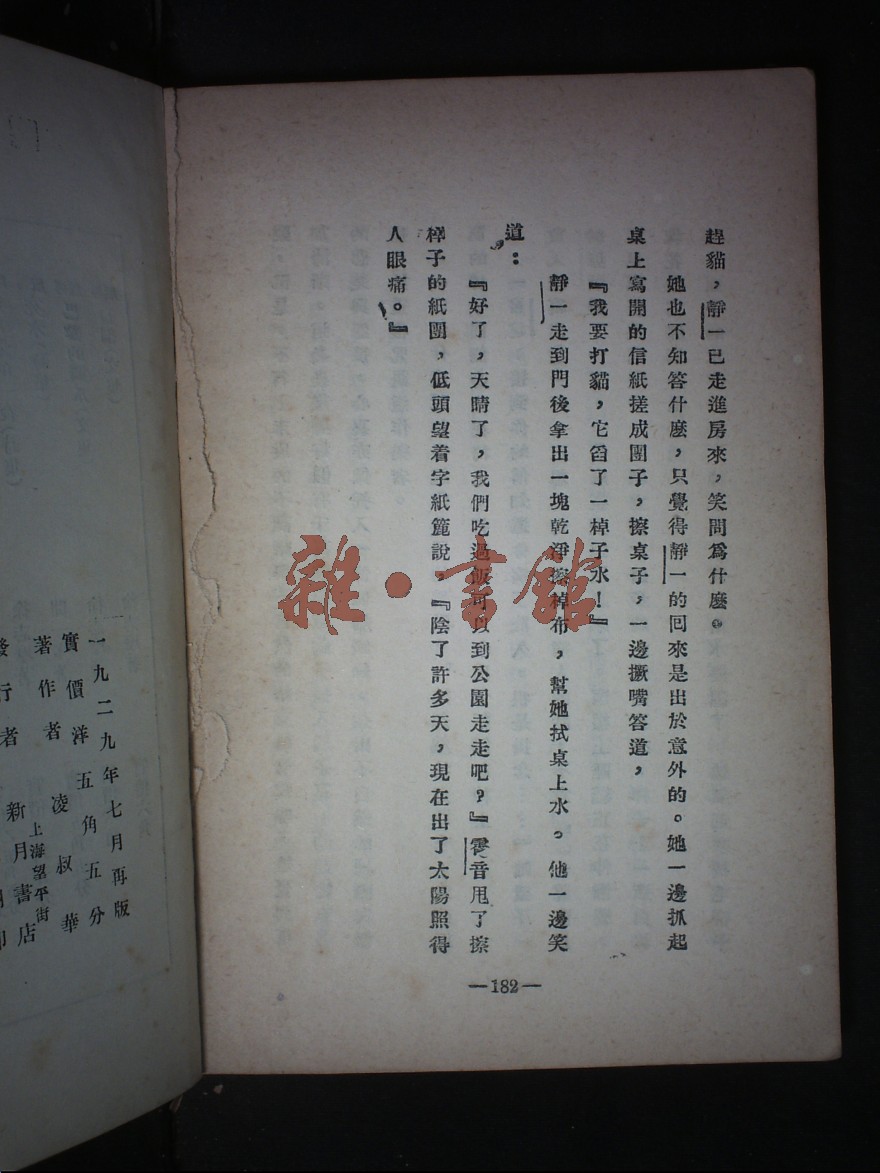 趕貓，靜一已走進房來，笑問爲什麼。
她也不知答什麼，只覺得靜一的回來是出於意外的。她一邊抓起
桌上寫開的信紙搓成團子，擦桌子，一邊撅嘴答道，
『我要打貓，它留了一棹子水！』
靜一走到門後拿出一塊乾淨擦棹布，幫她拭桌上水。他一邊笑
道：
『好了，天晴了，我們吃過飯可以到公園走走吧？』霓音甩了擦
棹子的紙團，低頭望着字紙簏說，『陰了許多天，現在出了太陽照得
人眼痛。』
—182—
雜·書館
一九二九年七月再版
實價洋五角五分
著作者 凌叔華
發行者 新月書店
上海望平街